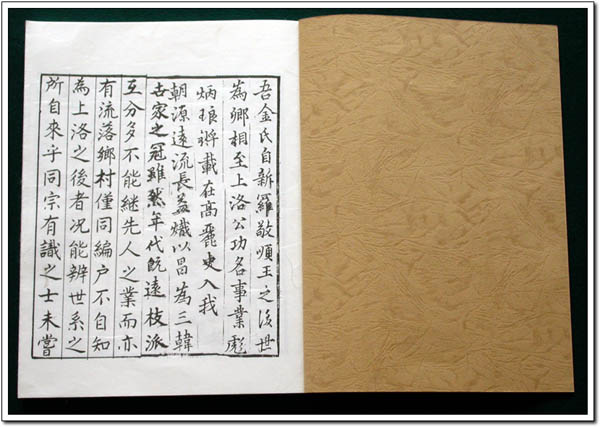 吾金氏自新羅敬順王之後世
為卿相至上洛公功名事業彪
炳琅將載在高麗史入我
朝源遠流長益熾以昌為三韓
古家之冠雖然年代旣遠枝派
互分多不能継先人之業而亦
有流落鄉村僅同編户不自知
為上洛之後者况能辨世系之
所自來乎同宗有識之士未嘗